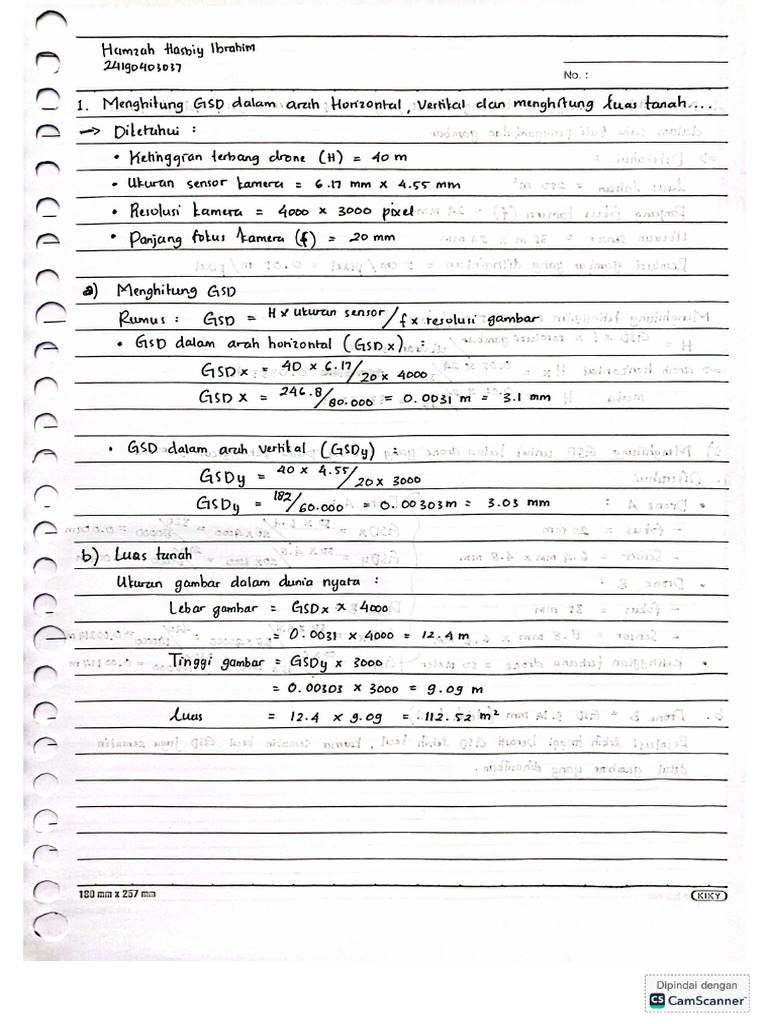 Hamzah Hasbiy Ibrahim
24190403037
No. :
1. Menghitung GSD dalam arah Horizontal, Vertikal dan menghitung luas tanah...
→ Diketahui :
• Ketinggian terbang drone (H) = 40 m
• Ukuran sensor kamera = 6.17 mm × 4.55 mm
• Resolusi kamera = 4000 × 3000 pixel
• Panjang fokus kamera (f) = 20 mm
a) Menghitung GSD
Rumus : GSD = H x ukuran sensor / f x resolusi gambar
• GSD dalam arah horizontal (GSDx) :
GSDx = 40 × 6.17 / 20 × 4000
GSDx = 246.8 / 80.000 = 0.0031 m = 3.1 mm
• GSD dalam arah vertikal (GSDy) :
GSDy = 40 × 4.55 / 20 × 3000
GSDy = 182 / 60.000 = 0.00303 m = 3.03 mm
b) Luas tanah
Ukuran gambar dalam dunia nyata :
Lebar gambar = GSDx × 4000
= 0.0031 × 4000 = 12.4 m
Tinggi gambar = GSDy × 3000
= 0.00303 × 3000 = 9.09 m
Luas = 12.4 × 9.09 = 112.52 m²
180 mm x 257 mm
KIKY
Dipindai dengan
CS CamScanner